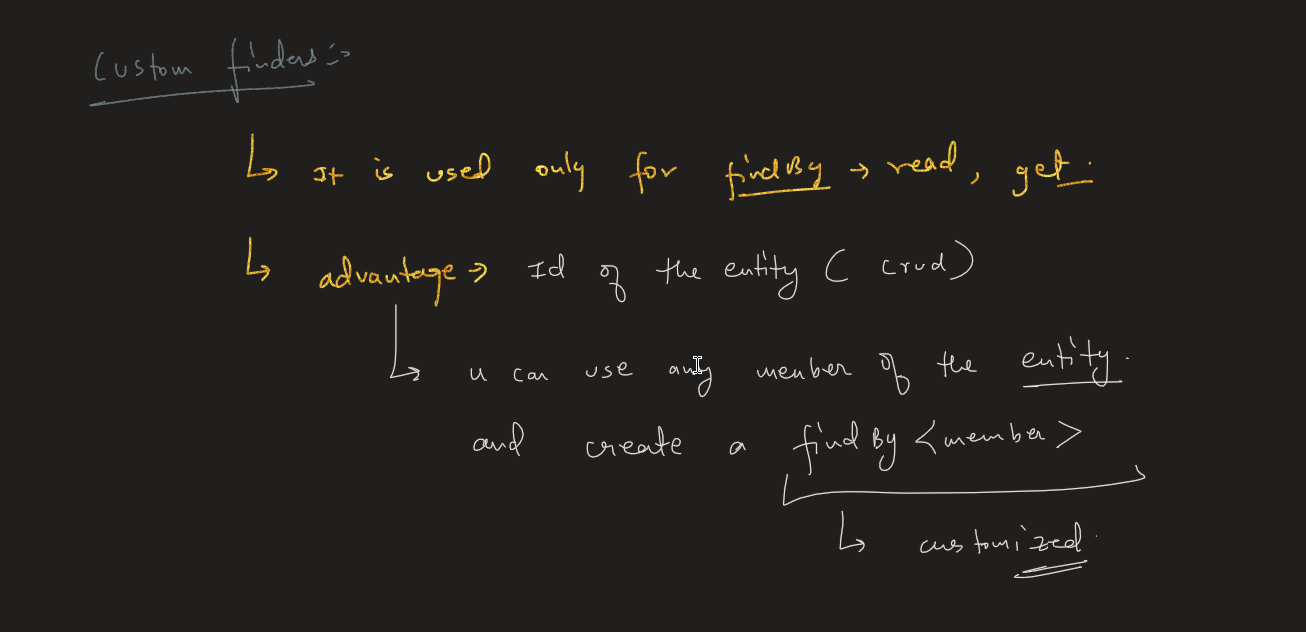 Custom finders :->
It is used only for findBy -> read, get.
advantage -> Id of the entity ( crud )
u can use any member of the entity.
and create a findBy <member>
customized.